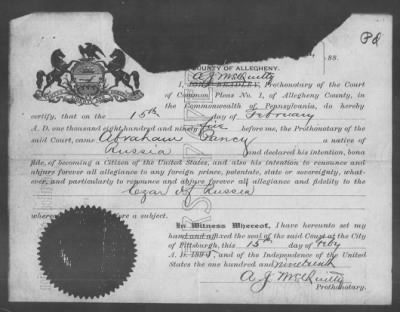 Pd
ss.
COUNTY OF ALLEGHENY.
A. J. McQuitty
I, JOHN BRADLEY, Prothonotary of the Court
of Common Pleas No. 1, of Allegheny County, in
the Commonwealth of Pennsylvania, do hereby
certify, that on the 15th day of February
A. D. one thousand eight hundred and ninety five before me, the Prothonotary of the
said Court, came Abraham a native of
Russia and declared his intention, bona
fide, of becoming a Citizen of the United States, and also his intention to renounce and
abjure forever all allegiance to any foreign prince, potentate, state or sovereignty, what-
ever, and particularly to renounce and abjure forever all allegiance and fidelity to the
Czar of Russia
where before a subject.
In Witness Whereof, I have hereunto set my
hand and affixed the seal of the said Court at the City
of Pittsburgh, this 15th day of Feby
A. D. 1895, and of the Independence of the United
States the one hundred and nineteenth
A. J. McQuitty
Prothonotary.